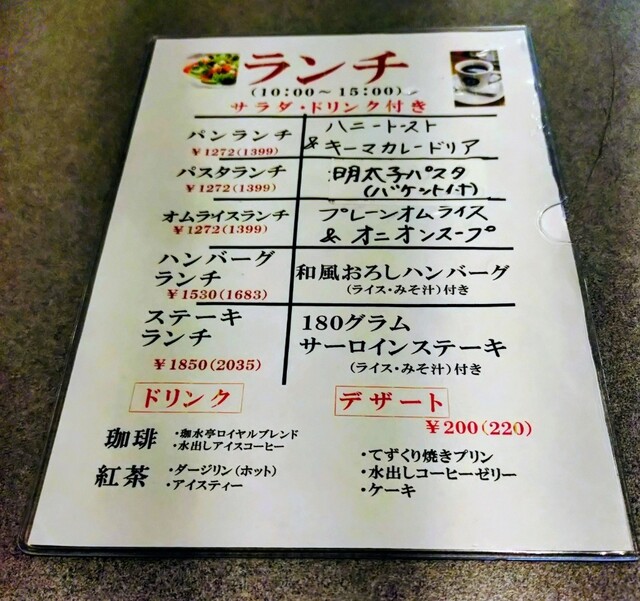 ランチ
(10:00～15:00)
サラダ・ドリンク付き
パンランチ
¥1272(1399)
ハニートースト
&キーマカレードリア
パスタランチ
¥1272(1399)
明太子パスタ
(バケット付)
オムライスランチ
¥1272(1399)
プレーンオムライス
& オニオンスープ
ハンバーグ
ランチ
¥1530(1683)
和風おろしハンバーグ
(ライス・みそ汁)付き
ステーキ
ランチ
¥1850(2035)
180グラム
サーロインステーキ
(ライス・みそ汁)付き
ドリンク
珈琲
・珈水亭ロイヤルブレンド
・水出しアイスコーヒー
紅茶
・ダージリン(ホット)
・アイスティー
デザート
¥200(220)
・てずくり焼きプリン
・水出しコーヒーゼリー
・ケーキ